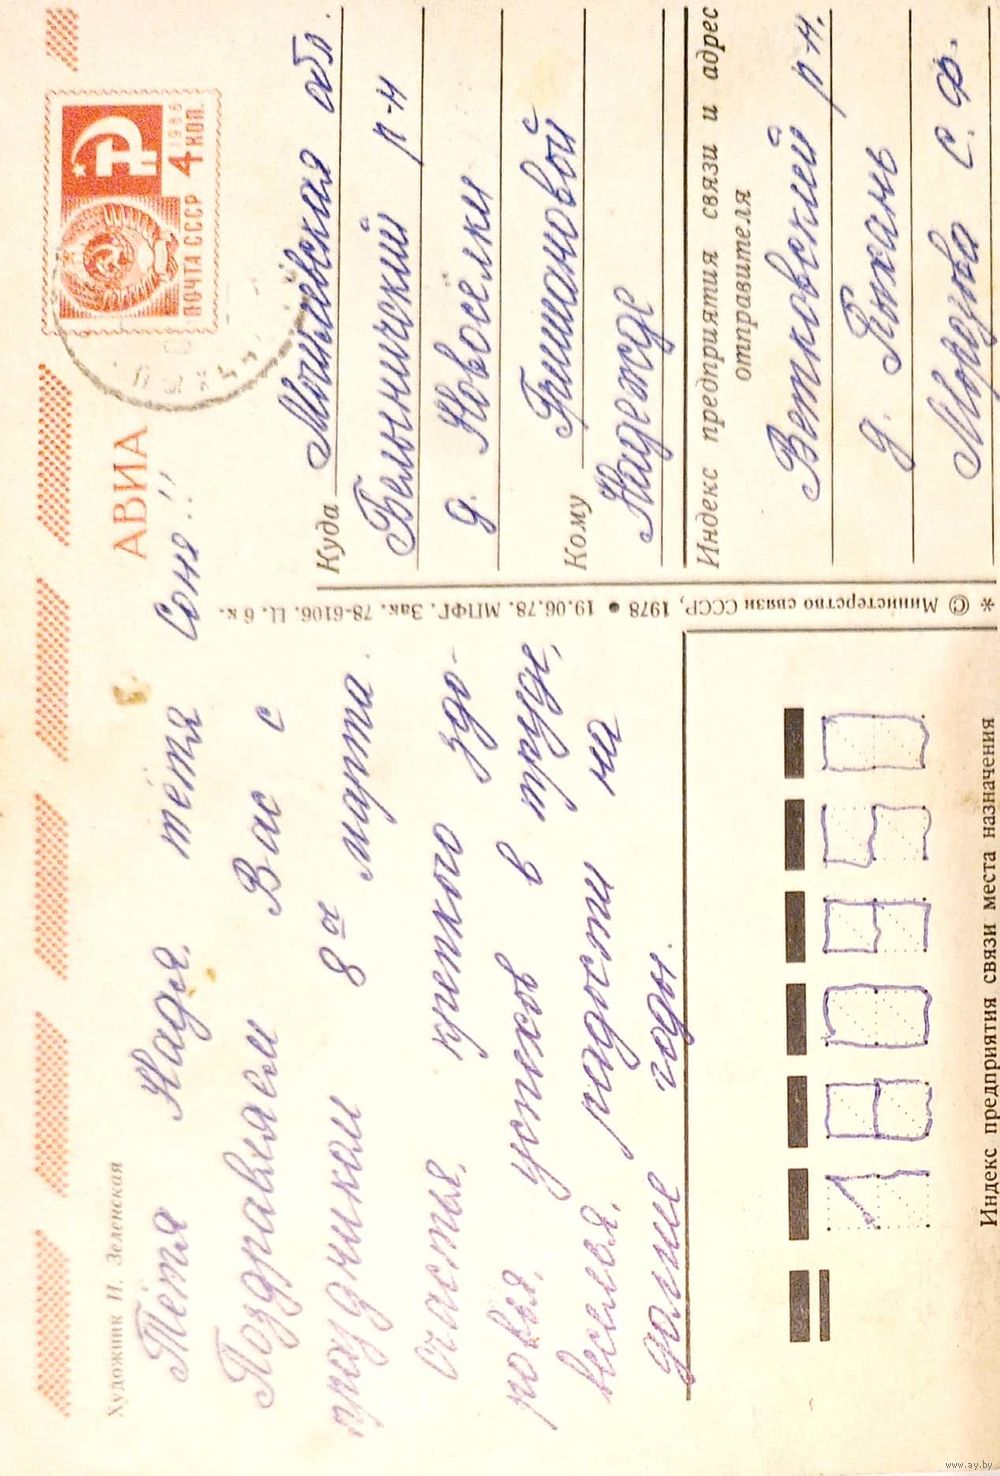 Художник Н. Зеленская
АВИА
ПОЧТА СССР
1966
4 КОП.
Тётя Надя, тётя Соня!!!
Поздравляем Вас с
праздником 8ое марта.
Счастья, крепкого здо-
ровья, успехов в труде,
веселья, радости на
долгие годы.
Куда Могилевская обл.
Белыничский р-н
д. Новосёлки
Кому Гришановой
Надежде
Индекс предприятия связи и адрес
отправителя
Ветковский р-н.
д. Пыхань
Морозова С. Ф.
* © Министерство связи СССР, 1978 • 19.06.78. МПФГ. Зак. 78-6106. Ц. 6 к.
Индекс предприятия связи места назначения
www.ay.by